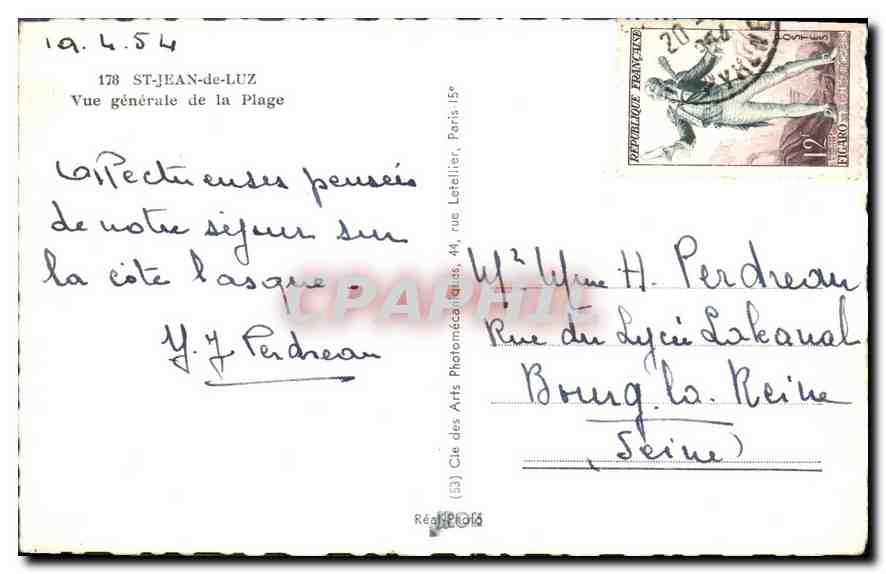 19.4.54
178 ST-JEAN-de-LUZ
Vue générale de la Plage
affectueuses pensées
de notre séjour sur
la côte basque.
Y. J Perdreau
(53) Cie des Arts Photomécaniques, 44, rue Letellier, Paris-15e
Réal-Photo
CPAPHIL
RÉPUBLIQUE FRANÇAISE
POSTES
12F
FIGARO
20
Mr. Mme H. Perdreau
Rue du Lycée Lakanal
Bourg. la. Reine
(Seine)